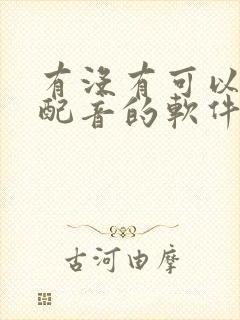 有没有可以
配音的軟件
古河由摩